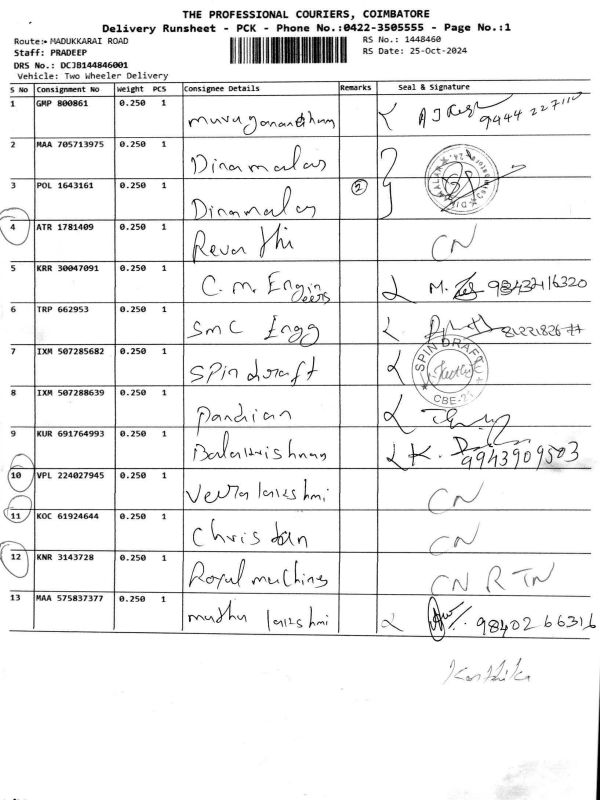 THE PROFESSIONAL COURIERS, COIMBATORE
Delivery Runsheet - PCK - Phone No.:0422-3505555 - Page No.:1
Route:- MADUKKARAI ROAD RS No.: 1448460
Staff: PRADEEP RS Date: 25-Oct-2024
DRS No.: DCJB144846001
Vehicle: Two Wheeler Delivery
S No Consignment No Weight PCS Consignee Details Remarks Seal & Signature
1 GMP 800861 0.250 1
muruganantham 9444 227110
2 MAA 705713975 0.250 1
Dinamalar
3 POL 1643161 0.250 1 2
Dinamalar
4 ATR 1781409 0.250 1
Revathi CN
5 KRR 30047091 0.250 1
C. M. Engineers M. 9843216320
6 TRP 662953 0.250 1
SMC Engg
7 IXM 507285682 0.250 1 SPIN DRAFT
Spin draft CBE-21
8 IXM 507288639 0.250 1
Pandian
9 KUR 691764993 0.250 1
Balakrishnan K. 9943909503
10 VPL 224027945 0.250 1
Veeralakshmi CN
11 KOC 61924644 0.250 1
Christan CN
12 KNR 3143728 0.250 1
Royal machines CN RTN
13 MAA 575837377 0.250 1
muthu lakshmi 98402 66316
Karthika